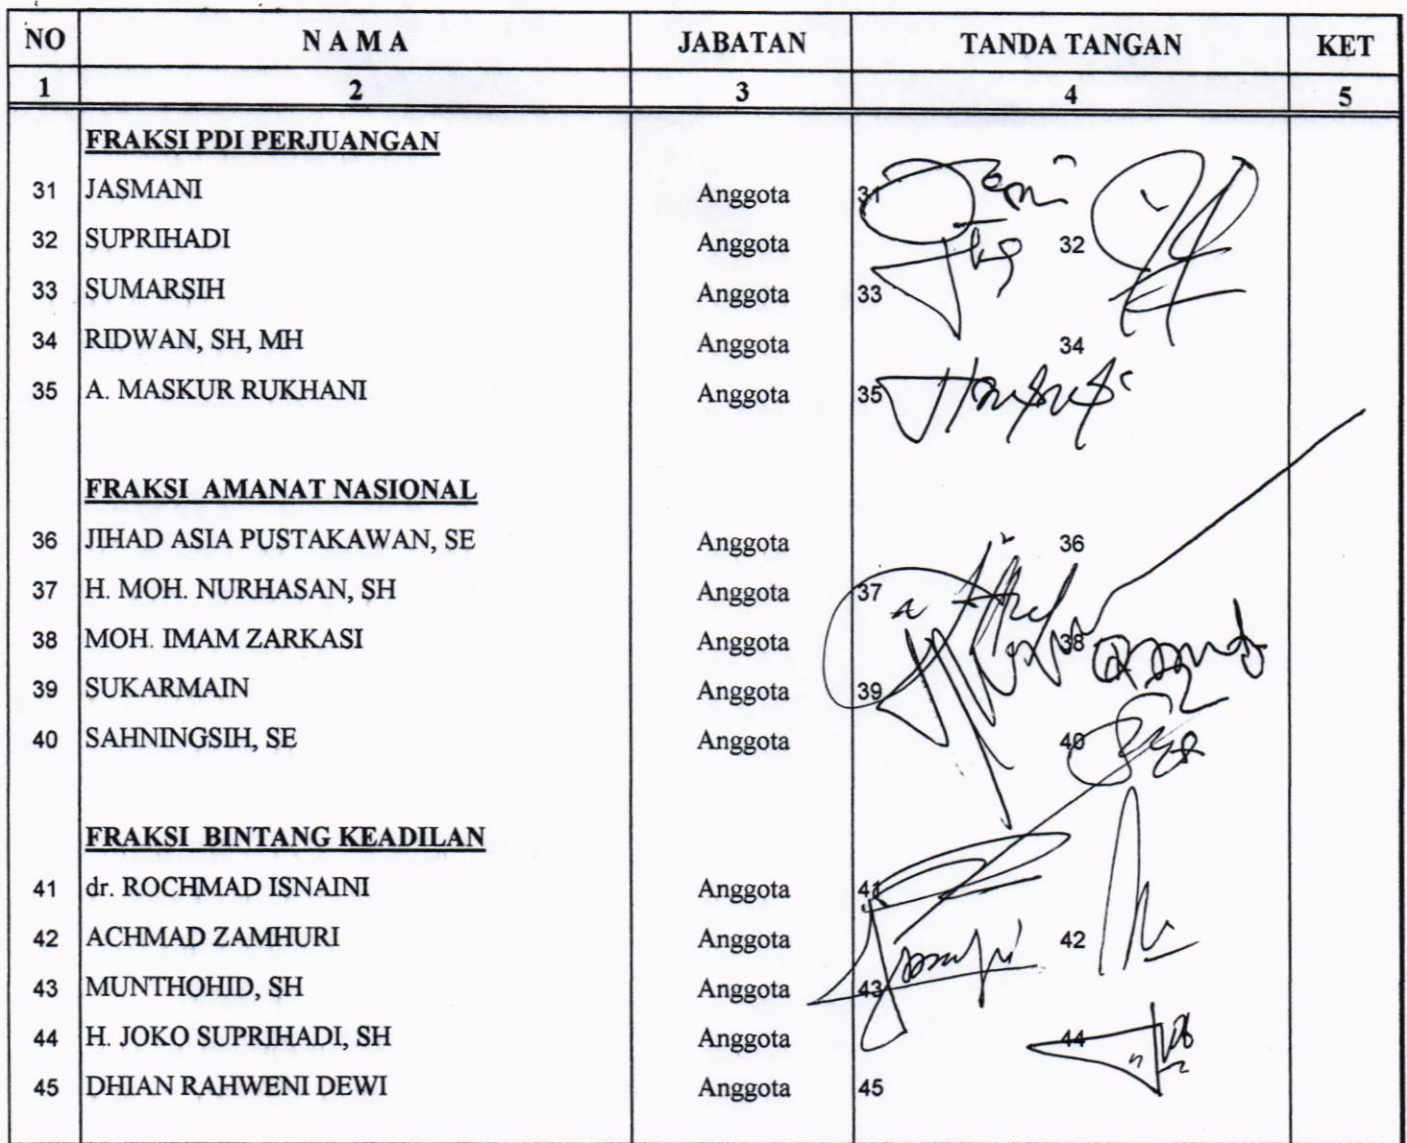 NO N A M A JABATAN TANDA TANGAN KET
1 2 3 4 5
FRAKSI PDI PERJUANGAN
31 JASMANI Anggota 31
32 SUPRIHADI Anggota 32
33 SUMARSIH Anggota 33
34 RIDWAN, SH, MH Anggota 34
35 A. MASKUR RUKHANI Anggota 35
FRAKSI AMANAT NASIONAL
36 JIHAD ASIA PUSTAKAWAN, SE Anggota 36
37 H. MOH. NURHASAN, SH Anggota 37
38 MOH. IMAM ZARKASI Anggota 38
39 SUKARMAIN Anggota 39
40 SAHNINGSIH, SE Anggota 40
FRAKSI BINTANG KEADILAN
41 dr. ROCHMAD ISNAINI Anggota 41
42 ACHMAD ZAMHURI Anggota 42
43 MUNTHOHID, SH Anggota 43
44 H. JOKO SUPRIHADI, SH Anggota 44
45 DHIAN RAHWENI DEWI Anggota 45